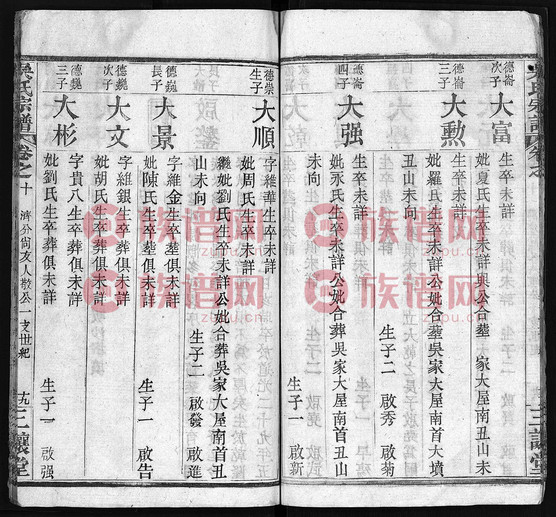 德崙次子
大富
生卒未詳
妣夏氏生卒未詳與公合塟 家大屋南丑山未
生子二 啟
德崙三子
大勲
生卒未詳
妣羅氏生卒未詳公妣合塟吳家大屋南首大墳
丑山未向
生子二 啟秀 啟菊
德崙四子
大强
生卒未詳
妣氶氏生卒未詳公妣合葬吳家大屋南首丑山
未向
生子一 啟新
德崇生子
大順
字維華生卒未詳
妣周氏生卒未詳
繼妣劉氏生卒未詳公妣合葬吳家大屋南首丑
山未向
生子二 啟發 啟進
德巍長子
大景
字維金生卒塟俱未詳
妣陳氏生卒塟俱未詳
生子一 啟告
德巍次子
大文
字維銀生卒葬俱未詳
妣胡氏生卒葬俱未詳
德巍三子
大彬
字貴八生卒葬俱未詳
妣劉氏生卒葬俱未詳
生子一 啟强
吳氏宗譜
卷之十
濟分尚友人散公一支世紀
十九
三讓堂
族谱网
zupu.cn